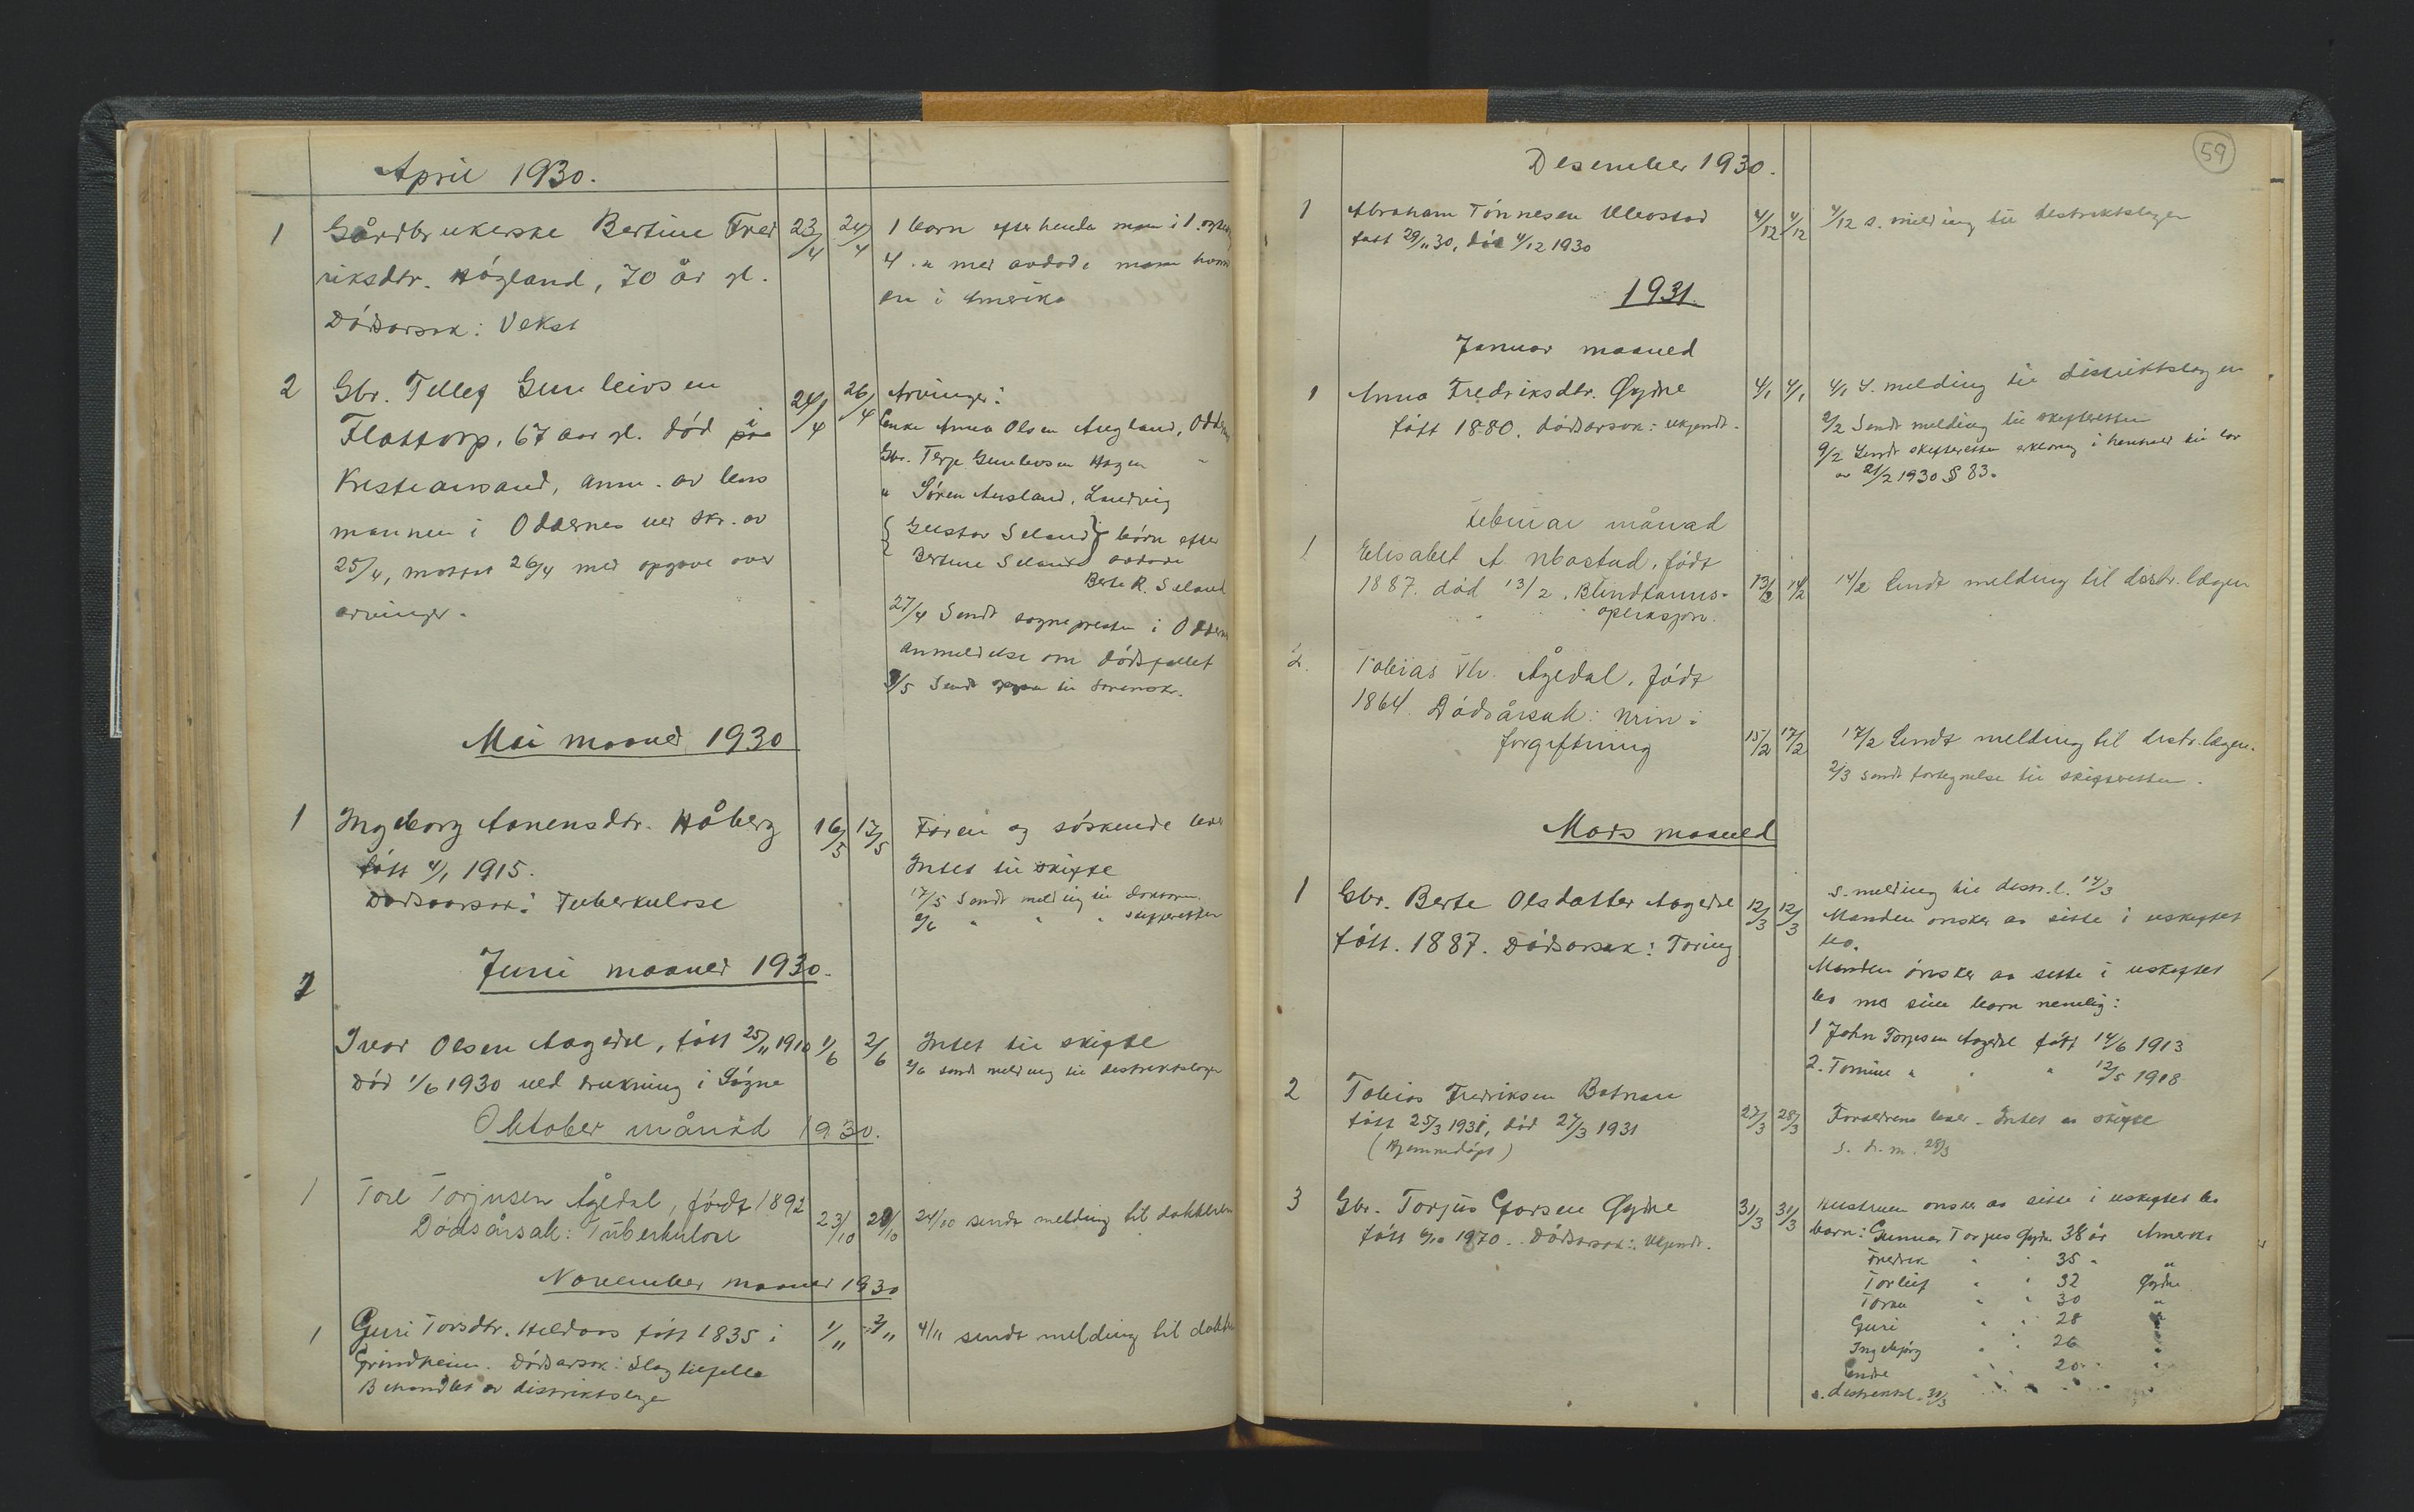 April 1930.
1 Gårdbrukerske Bertine Fred 23/4 24/4 1 barn efter hende man i 1.
riksdtr. Høgland, 70 år gl. 4 " med avdøde mann hvorav
en i Amerika
Dødsårsak: Vekst
2 Gbr. Tellef Gunleivsen 24/4 26/4 Arvinger:
Flottorp, 67 aar gl. død i Enke Anna Olsen Augland,
Kristiansand, anm. av lens Gbr. Terje Gunlevsen Hagen "
mannen i Oddernes ved skr. av " Søren Ausland, Laudvig
25/4, mottat 26/4 med opgave over Gustav Seland } børn efter
arvinger. Bertine Seland } avdøde
Berte R. Seland
27/4 Sendt sognepresten i
anmeldelse om dødsfallet
/5 Sendt til sorenskr.
Mai maaned 1930
1 Ingeborg Aanensdtr. Håberg 16/5 17/5 Faren og søskende lever
født 4/1 1915. Intet til skifte
Dødsaarsak: Tuberkulose 17/5 Sendt melding til doktoren.
2/6 " " " skifteretten
Juni maaned 1930.
2
Ivar Olsen Aagedal, født 25/11 1910 1/6 2/6 Intet til skifte
Død 1/6 1930 ved drukning i Søgne 2/6 sendt melding til distriktslægen
Oktober månad 1930.
1 Tore Torjusen Ågedal, født 1892 23/10 /10 24/10 sendt melding til doktoren
Dødsårsak: Tuberkulose
November maaned 1930
1 Guri Torsdtr. født 1835 i 1/11 /11 4/11 sendt melding til
Grindheim. Dødsårsak: Slagtilfelle
Behandlet av distriktslege
59
Desember 1930.
1 Abraham Tønnesen Ubostad 4/12 4/12 4/12 s. melding til distriktslegen
født 29/11 30, død 4/12 1930
1931.
Januar maaned
1 Anna Fredriksdtr. Øydne 4/1 4/1 4/1 S. melding til distriktslegen
født 1880. dødsårsak: ukjendt. 2/2 Sendt melding til skifteretten
9/2 Sendt skifteretten erklæring i henhold til lov
av 21/2 1930 § 83.
Februar månad
1 Elisabet A. Ubostad, født
1887. død 13/2. Blindtarms- 13/2 14/2 14/2 Sendt melding til distr. lægen
operasjon.
2. Tobias Th. Ågedal, født
1864 Dødsårsak: Urin-
forgiftning 15/2 17/2 17/2 Sendt melding til distr. lægen.
2/3 sendt fortegnelse til skifteretten.
Mars maaned
1 Gbr. Berte Olsdatter Aagedal 12/3 12/3 S. melding til distr. l. 14/3
født. 1887. Dødsårsak: Tæring Manden ønsker aa sitte i uskiftet
bo.
Manden ønsker aa sitte i uskiftet
bo med sine barn nemlig:
1 John Torjesen Aagedal født 14/6 1913
2. Tomine " " " 12/5 1918
2 Tobias Fredriksen Botnan
født 25/3 1931, død 27/3 1931 27/3 28/3 Foreldrene lever. Intet å skifte
(Hjemmedøpt) s. d. m. 28/3
3 Gbr. Torjus Øydne 31/3 31/3 Hustruen ønsker aa sitte i uskiftet bo
født 6/10 1870. Dødsårsak: Ukjendt. barn: Gunnar Torjus Øydn 38 år Amerika
Fredrik " " 35 " "
Torleif " " 32 Øydne
" " 30 "
Guri " " 28 "
Ingebjørg " " 26 "
Endre " " 20 " "
s. distriktsl. 31/3